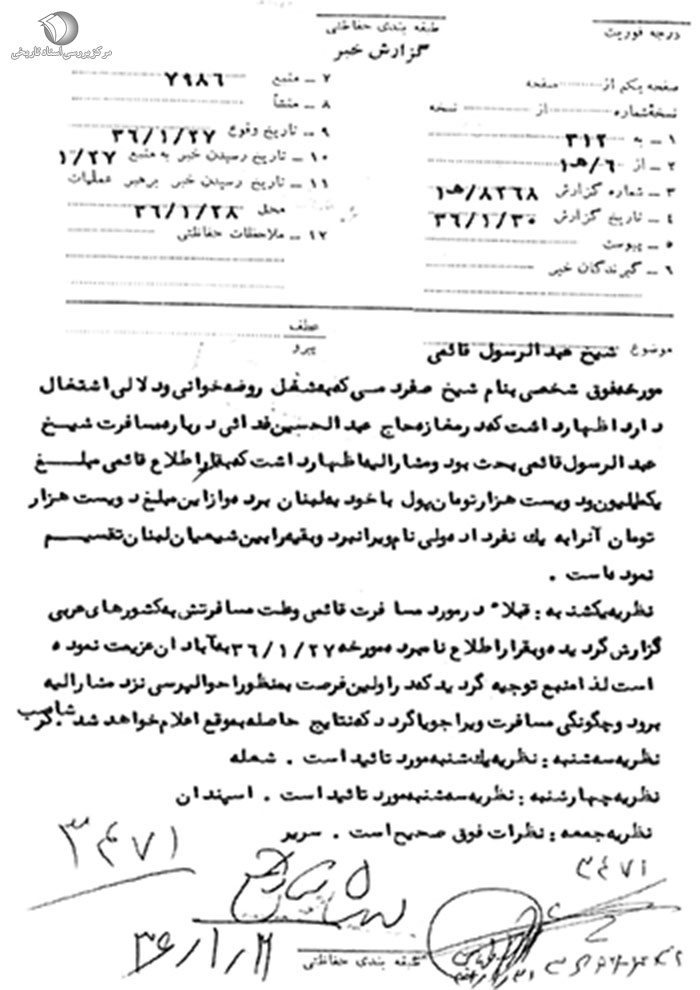 مرکز بررسی اسناد تاریخی
درجه فوریت
طبقه بندی حفاظتی
گزارش خبر
صفحه یکم از صفحه
نسخه شماره از نسخه
۱ ــ به ۳۱۲
۲ ــ از ۶/هـ۱
۳ ــ شماره گزارش ۸۲۶۸/هـ۱
۴ ــ تاریخ گزارش ۳۶/۱/۳۰
۵ ــ پیوست
۶ ــ گیرندگان خبر
۷ ــ منبع ۷۹۸۶
۸ ــ منشأ
۹ ــ تاریخ وقوع ۳۶/۱/۲۷
۱۰ ــ تاریخ رسیدن خبر به منبع ۱/۲۷
۱۱ ــ تاریخ رسیدن خبر برهبر عملیات
محل ۳۶/۱/۲۸
۱۲ ــ ملاحظات حفاظتی
موضوع شیخ عبدالرسول قائمی
عطف
پیرو
مورخه فوق شخصی بنام شیخ صفر مسی که به شغل روضه خوانی و دلالی اشتغال
دارد اظهار داشت که در مغازه حاج عبدالحسین فدائی درباره مسافرت شیخ
عبدالرسول قائمی بحث بود و مشارالیه اظهار داشت که بقرار اطلاع قائمی مبلغ
یک میلیون و دویست هزار تومان پول با خود به لبنان برده و از این مبلغ دویست هزار
تومان آنرا به یک نفر داده ولی نام ویرا نبرد و بقیه را بین شیعیان لبنان تقسیم
نموده است .
نظریه یکشنبه : قبلاً در مورد مسافرت قائمی و علت مسافرتش به کشورهای عربی
گزارش گردیده و بقرار اطلاع نامبرده مورخه ۳۶/۱/۲۷ به آبادان عزیمت نموده
است لذا منبع توجیه گردید که در اولین فرصت بمنظور احوالپرسی نزد مشارالیه
برود و چگونگی مسافرت ویرا جویا گردد که نتایج حاصله به موقع اعلام خواهد شد .
نظریه سه شنبه : نظریه یکشنبه مورد تائید است . شعله
نظریه چهارشنبه : نظریه سه شنبه مورد تائید است . اسپندان
نظریه جمعه : نظرات فوق صحیح است . سریر
۳۴۷۱
۳۴۷۱
طبقه بندی حفاظتی